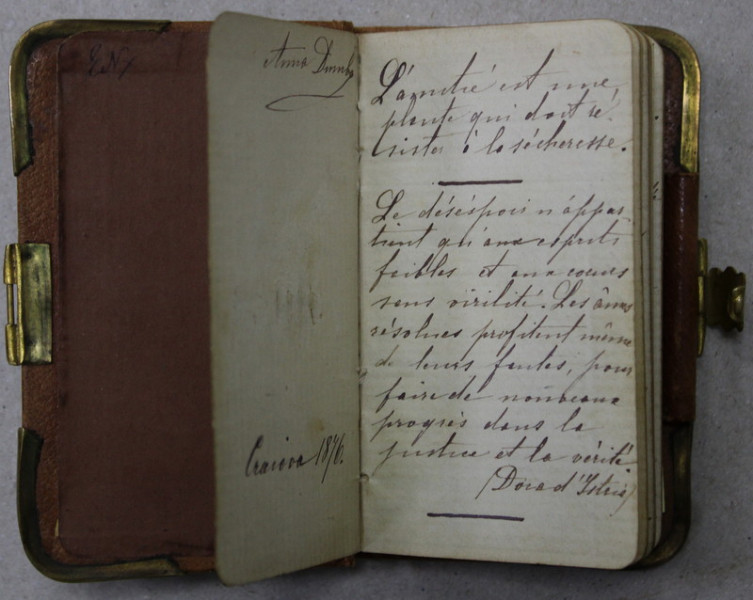 Anna
Craiova 1876.
L'amitié est une
plante qui doit ré-
sister à la sécheresse.
Le désespoir n'appar-
tient qu'aux esprits
faibles et aux cœurs
sans virilité. Les âmes
résolues profitent même
de leurs fautes, pour
faire de nouveaux
progrès dans la
justice et la vérité
(Dora d'Istria)